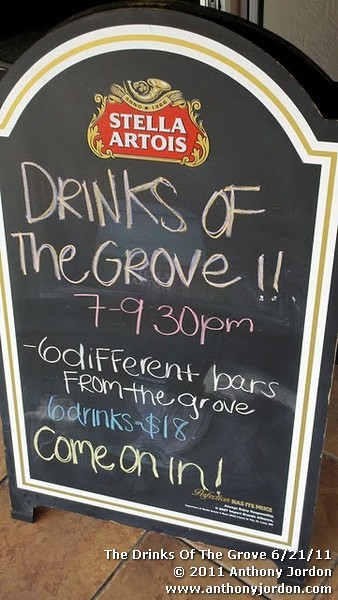 ANNO • 1366
STELLA
ARTOIS
DRINKS OF
The GROVE !!
7-9 30pm
-6 different bars
From the grove
6 drinks-$18
Come on in!
Perfection HAS ITS PRICE
Always Enjoy Responsibly.
The Drinks Of The Grove 6/21/11
© 2011 Anthony Jordon
www.anthonyjordon.com